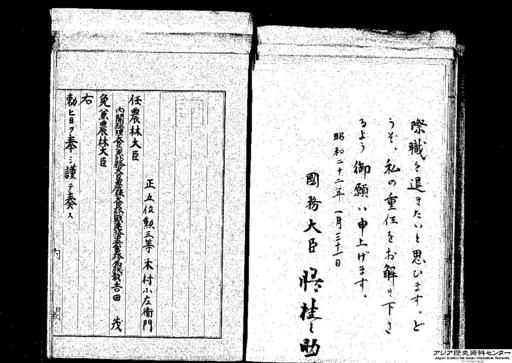 際職を退きたいと思ひます。ど
うぞ、私の重任をお解き下さ
るよう御願ひ申上げます。
昭和二十二年一月三十一日
國務大臣 膳桂之助
正五位勲三等木村小左衛門
任農林大臣
吉田茂
免兼農林大臣
右
勅旨ヲ奉シ謹テ奏ス
内閣
アジア歴史資料センター
Japan Center for Asian Historical Records